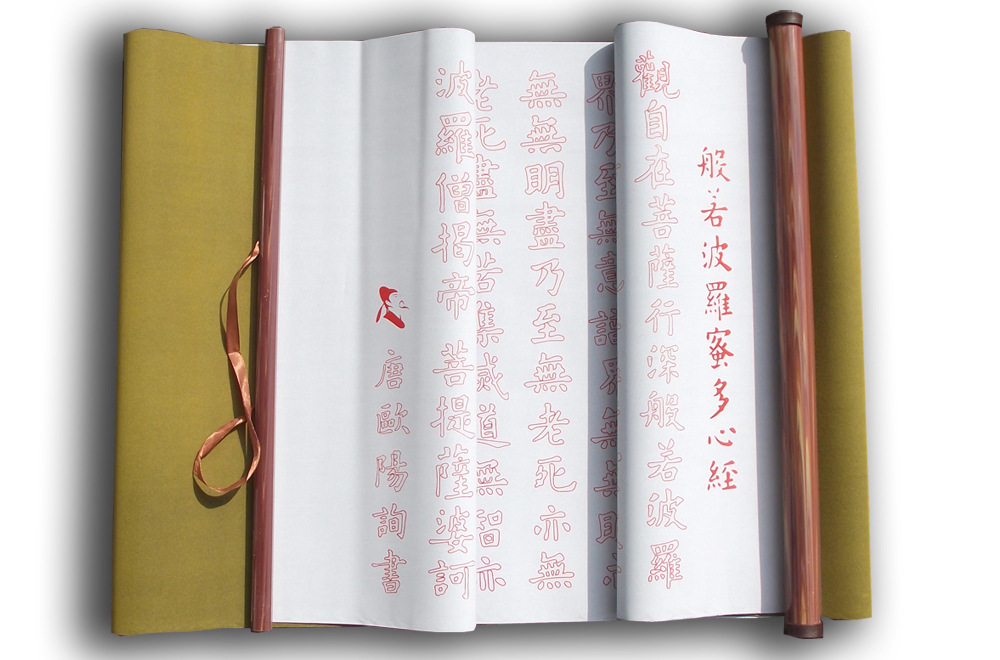 般若波羅蜜多心經
觀自在菩薩行深般若波羅
界乃至無意識界無無明亦
無無明盡乃至無老死亦無
老死盡無苦集滅道無智亦
波羅僧揭帝 菩提薩婆訶
唐歐陽詢書